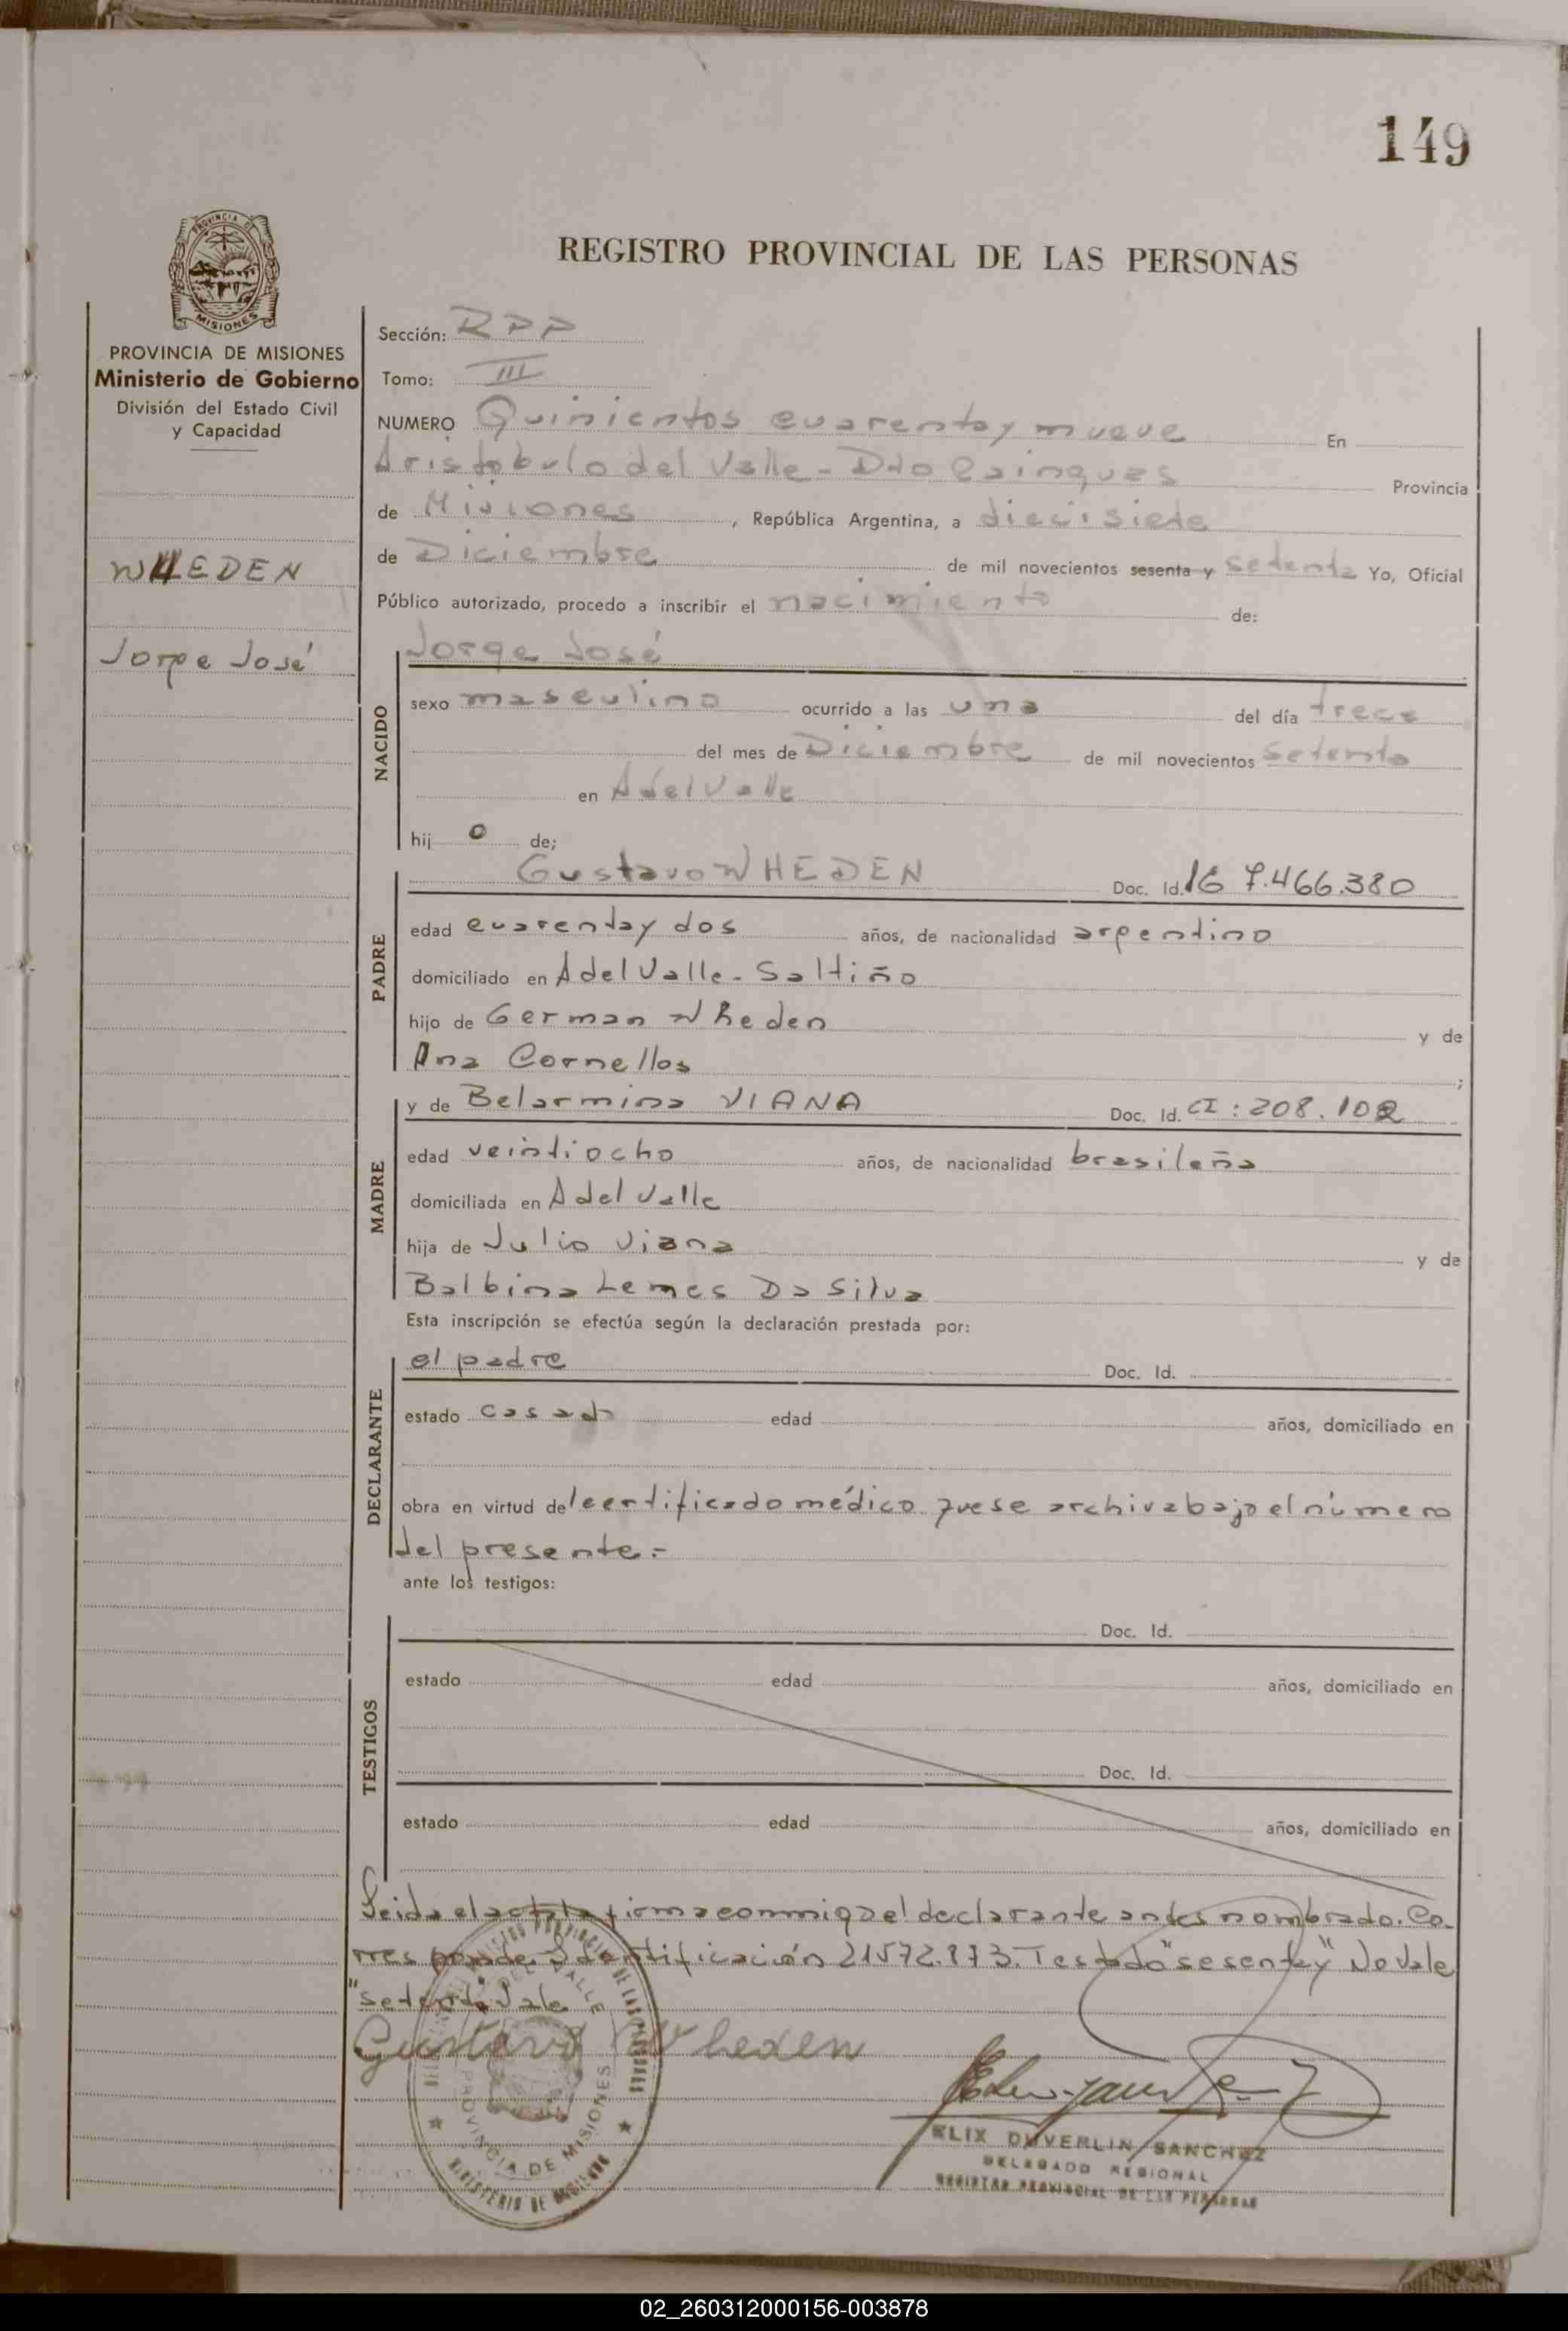 149
PROVINCIA DE
MISIONES
REGISTRO PROVINCIAL DE LAS PERSONAS
PROVINCIA DE MISIONES
Ministerio de Gobierno
División del Estado Civil
y Capacidad
WHEDEN
Jorge José
Sección: RPP
Tomo: III
NUMERO Quinientos cuarenta y nueve En
Aristobulo del Valle - Dto Cainguas Provincia
de Misiones, República Argentina, a diecisiete
de Diciembre de mil novecientos sesenta y setenta Yo, Oficial
Público autorizado, procedo a inscribir el nacimiento de:
Jorge José
NACIDO
sexo masculino ocurrido a las una del día trece
del mes de Diciembre de mil novecientos setenta
en A del Valle
hijo de;
Gustavo WHEDEN Doc. Id. 7.466.380
PADRE
edad cuarenta y dos años, de nacionalidad argentino
domiciliado en A del Valle - Saltiño
hijo de German Wheden y de
Ana Cornellos ;
MADRE
y de Belarmina VIANA Doc. Id. CI: 208.102
edad veintiocho años, de nacionalidad brasileña
domiciliada en A del Valle
hija de Julio Viana y de
Balbina Lemes Da Silva
Esta inscripción se efectúa según la declaración prestada por:
DECLARANTE
el padre Doc. Id.
estado casado edad años, domiciliado en
obra en virtud del certificado médico que se archiva bajo el número
del presente.-
ante los testigos:
TESTIGOS
Doc. Id.
estado edad años, domiciliado en
Doc. Id.
estado edad años, domiciliado en
Leida el acta la firma conmigo el declarante antes nombrado. Co-
rresponde Identificación 21572.873. Testado "sesenta y" No Vale
"setenta Vale
Gustavo Wheden
DEL VALLE
PROVINCIA DE MISIONES
MINISTERIO DE GOBIERNO
ELIX DUVERLIN SANCHEZ
DELEGADO REGIONAL
REGISTRO PROVINCIAL DE LAS PERSONAS
02_260312000156-003878